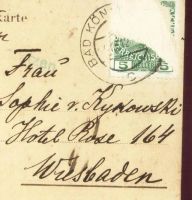 karte
BAD KÖN
5 5
C
Frau
Sophie v. Kynowski
Hotel Rose 164
Wiesbaden